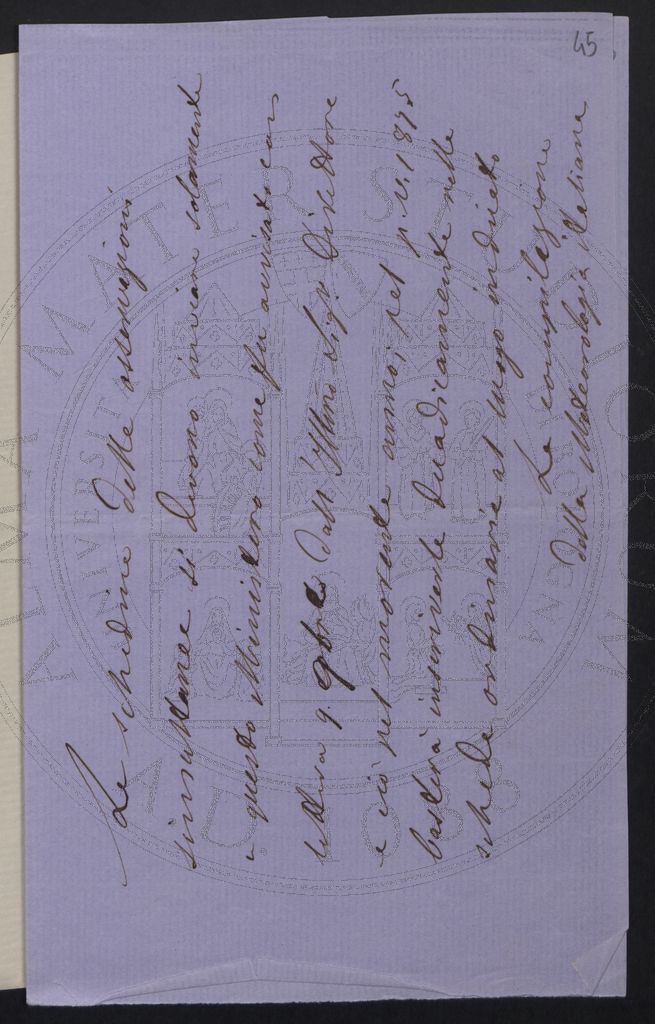 45
Le schedine delle osservazioni
simultanee si devono inviare solamente
a questo Ministero come fu avvisato con
lettera 9. 9bre dall' Illmo Sigr Direttore
e ciò pel morente anno; pel p.v. 1875
basterà inscriverle decadicamente nelle
schede ordinarie al luogo indicato
La compilazione
della Meteorologia Italiana
ALMA MATER STUDIORUM
UNIVERSITÀ DI BOLOGNA
A.D. 1088